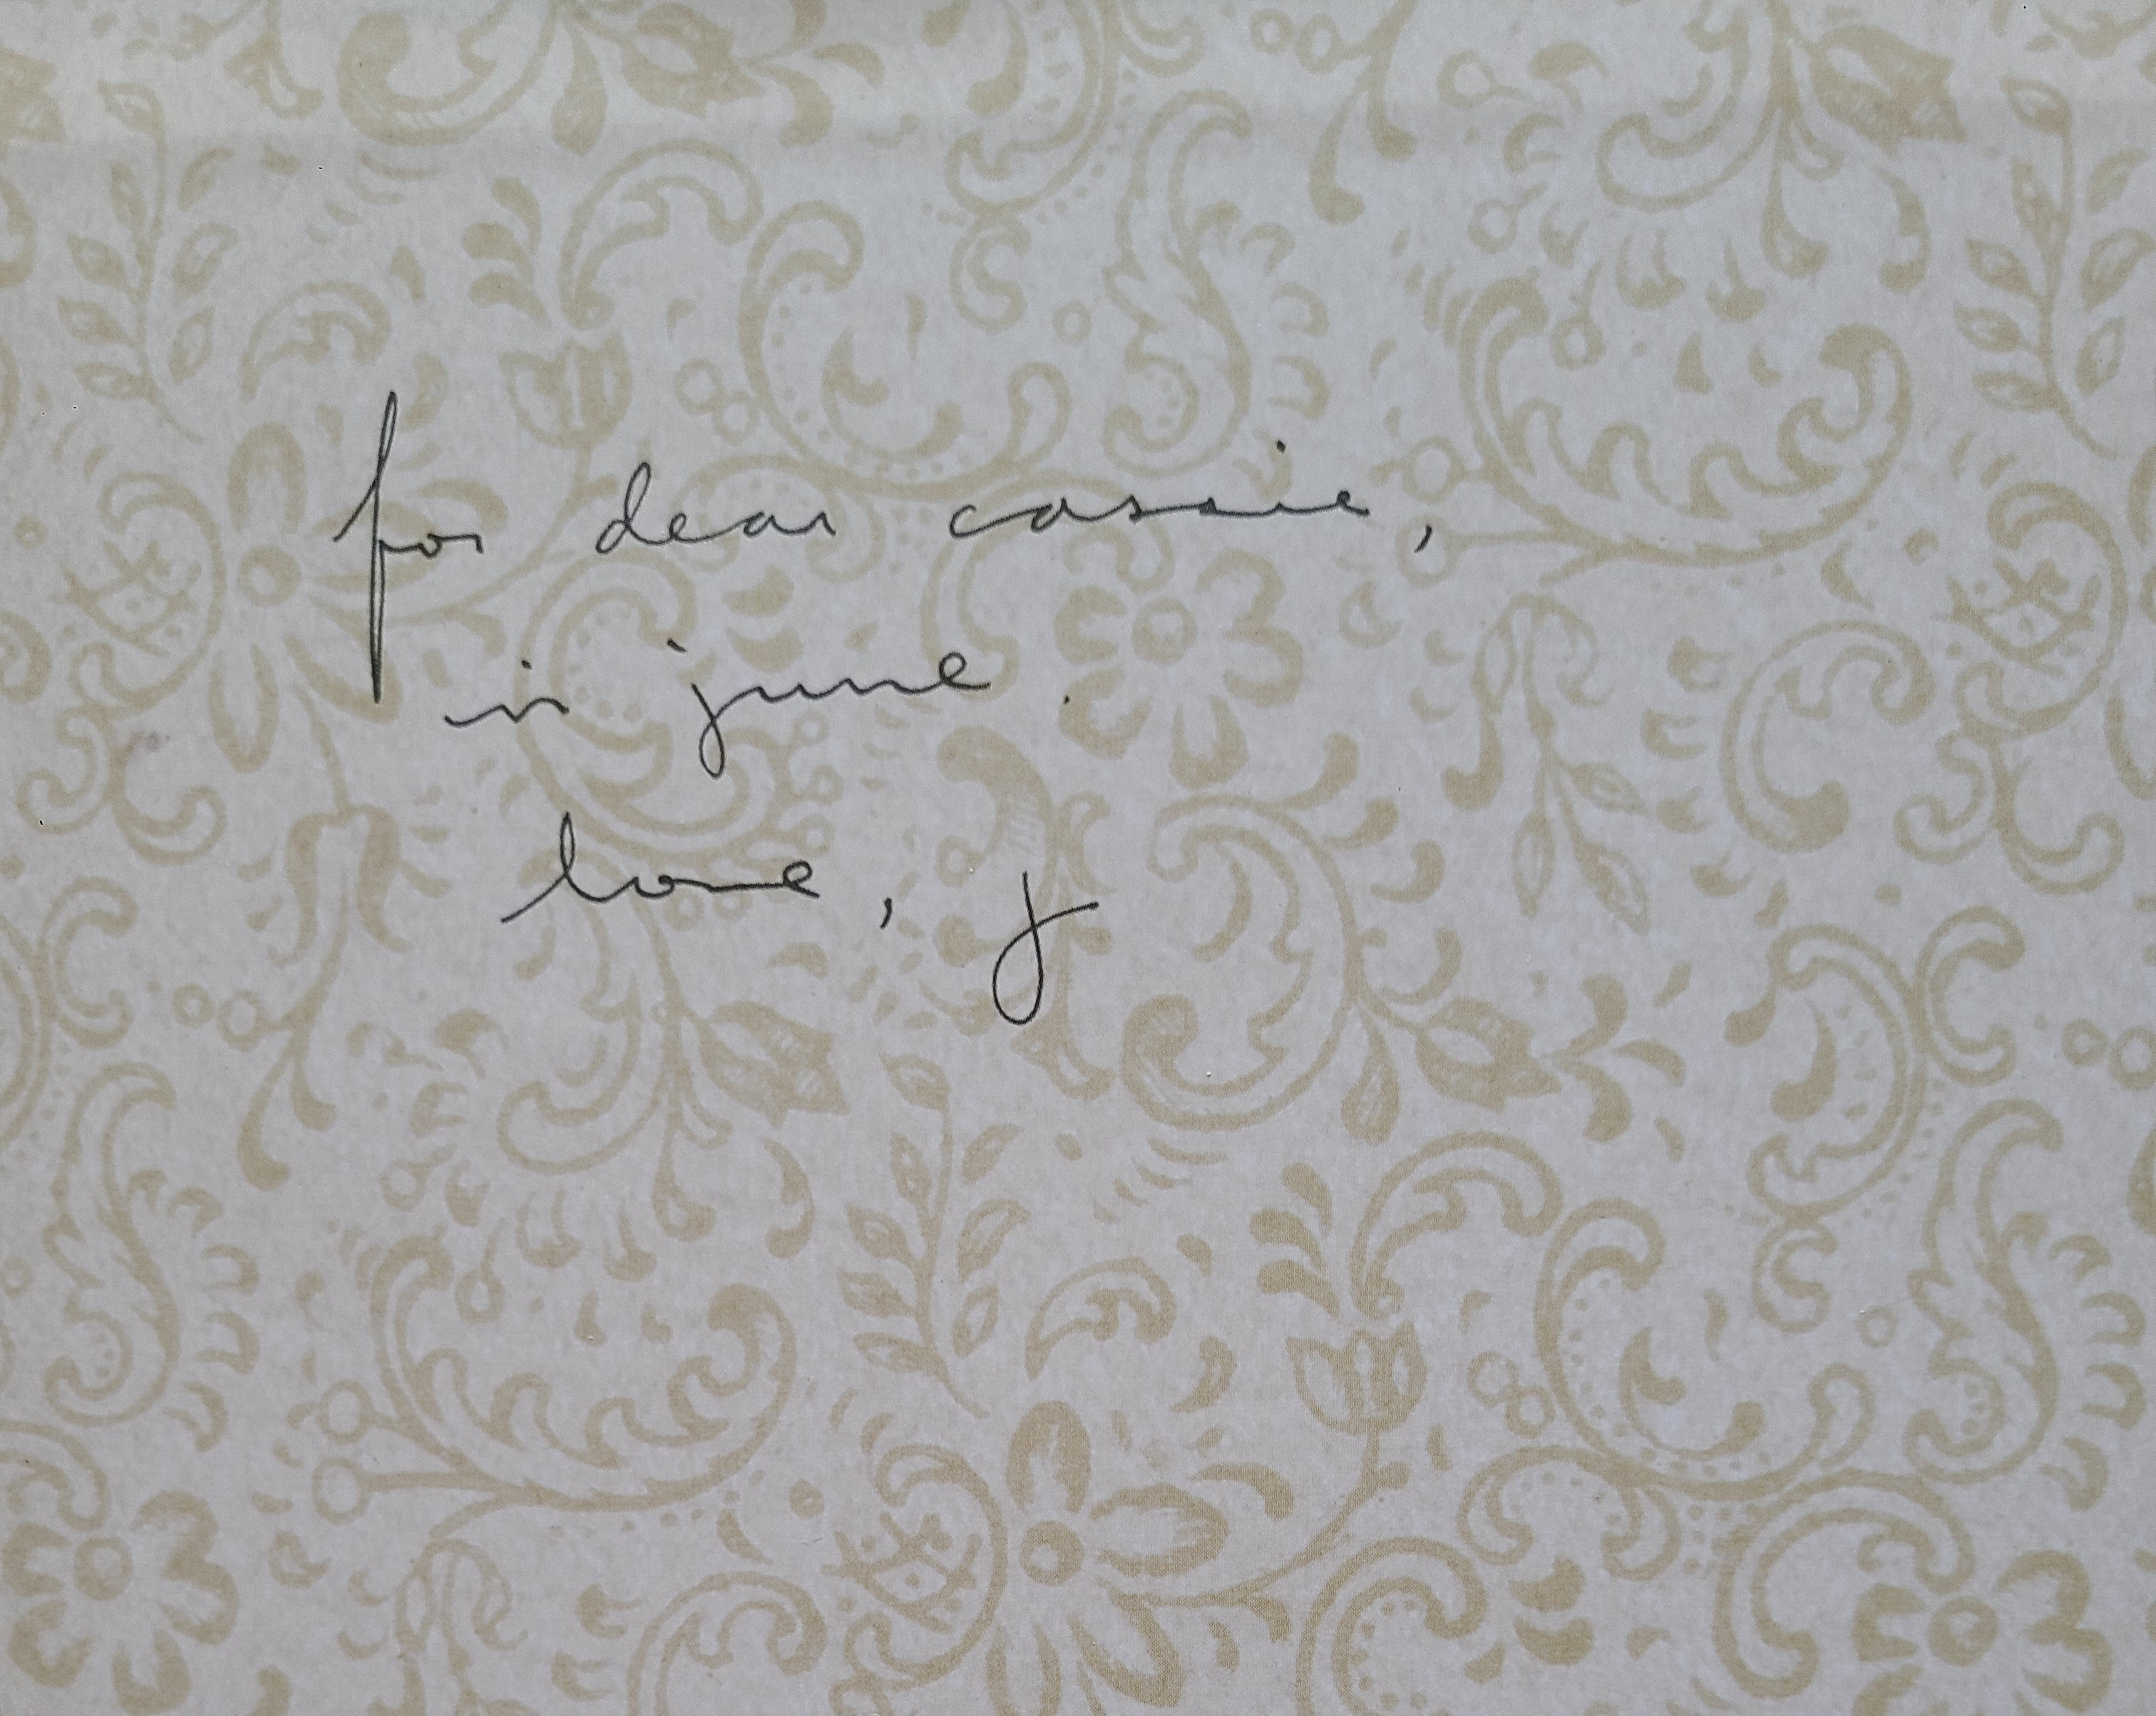 for dear cassie,
in june.
love, j